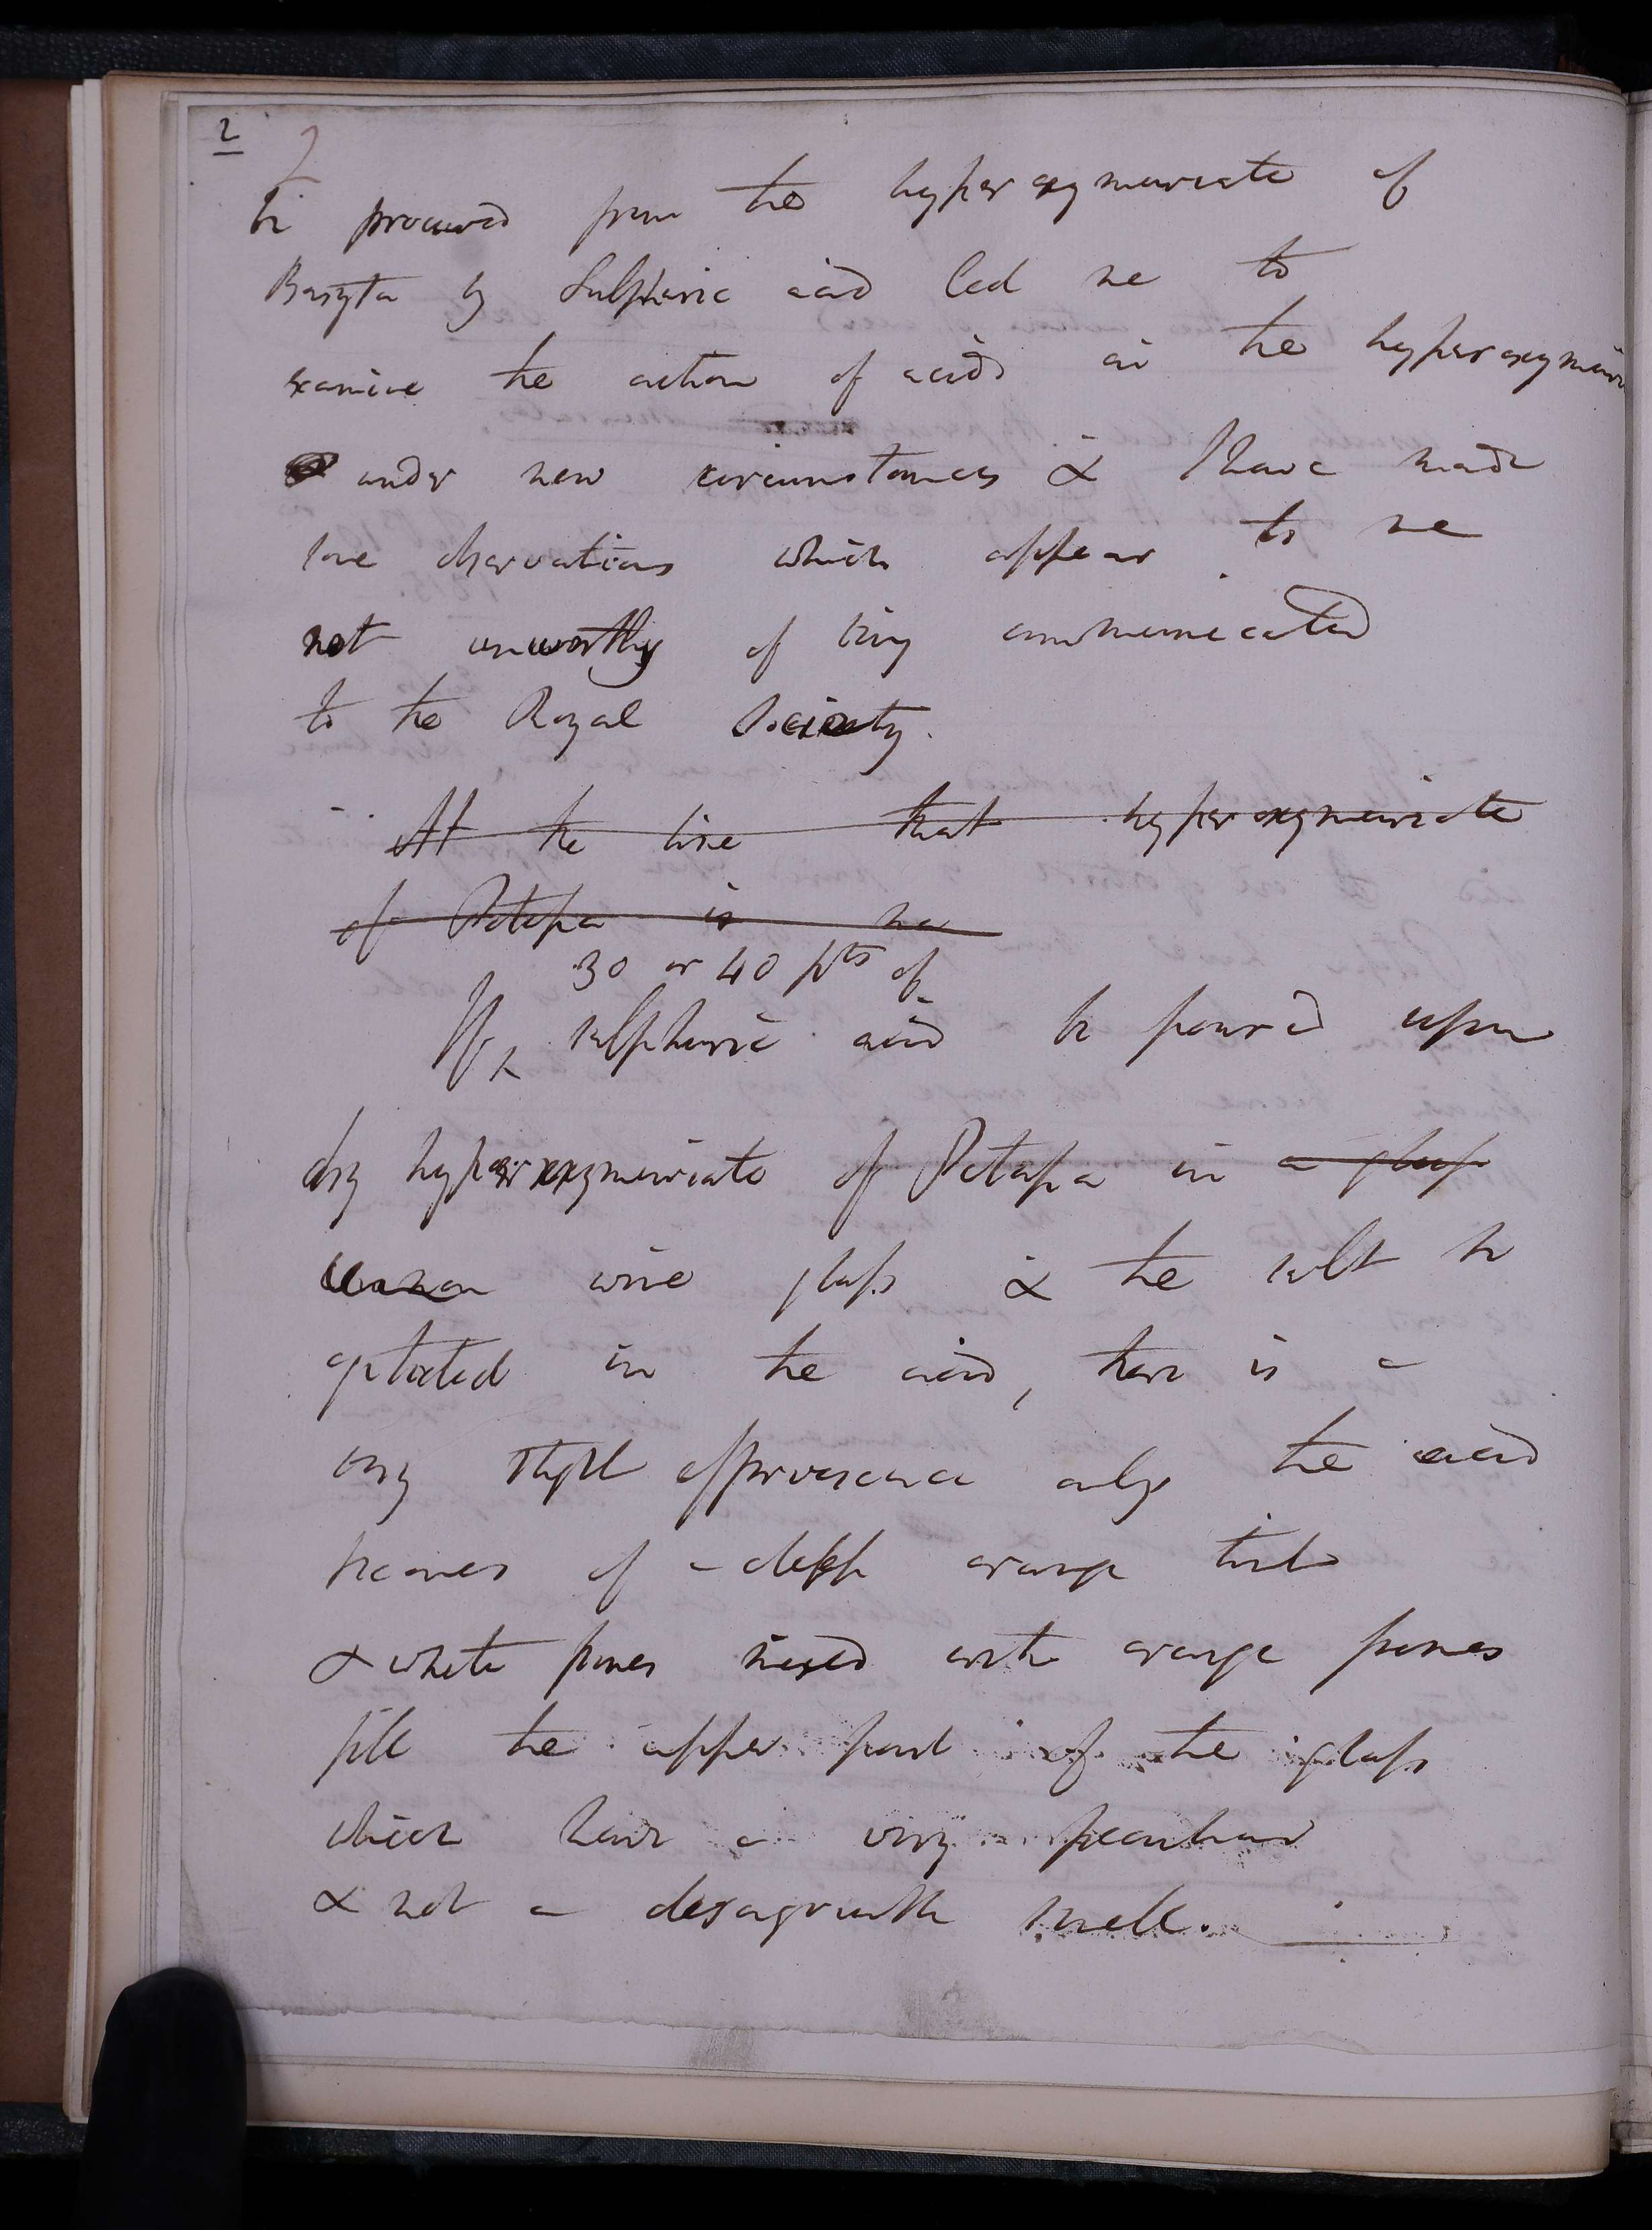 2
be procured from the hyperoxymuriate of
Baryta by Sulphuric acid led me to
examine the action of acids on the hyperoxymuri
under new circumstances & I have made
some observations which appear to me
not unworthy of being communicated
to the Royal Society.
At the time that hyperoxymuriate
of Potassa is
30 or 40 pts of
If sulphuric acid be poured upon
dry hyperoxymuriate of Potassa in a glass
wine glass & the salt be
agitated in the acid, there is a
very slight effervescence only the acid
becomes of a deep orange tint
& white fumes mixed with orange fumes
fill the upper part of the glass
which have a very peculiar
& not a desagreeable smell.